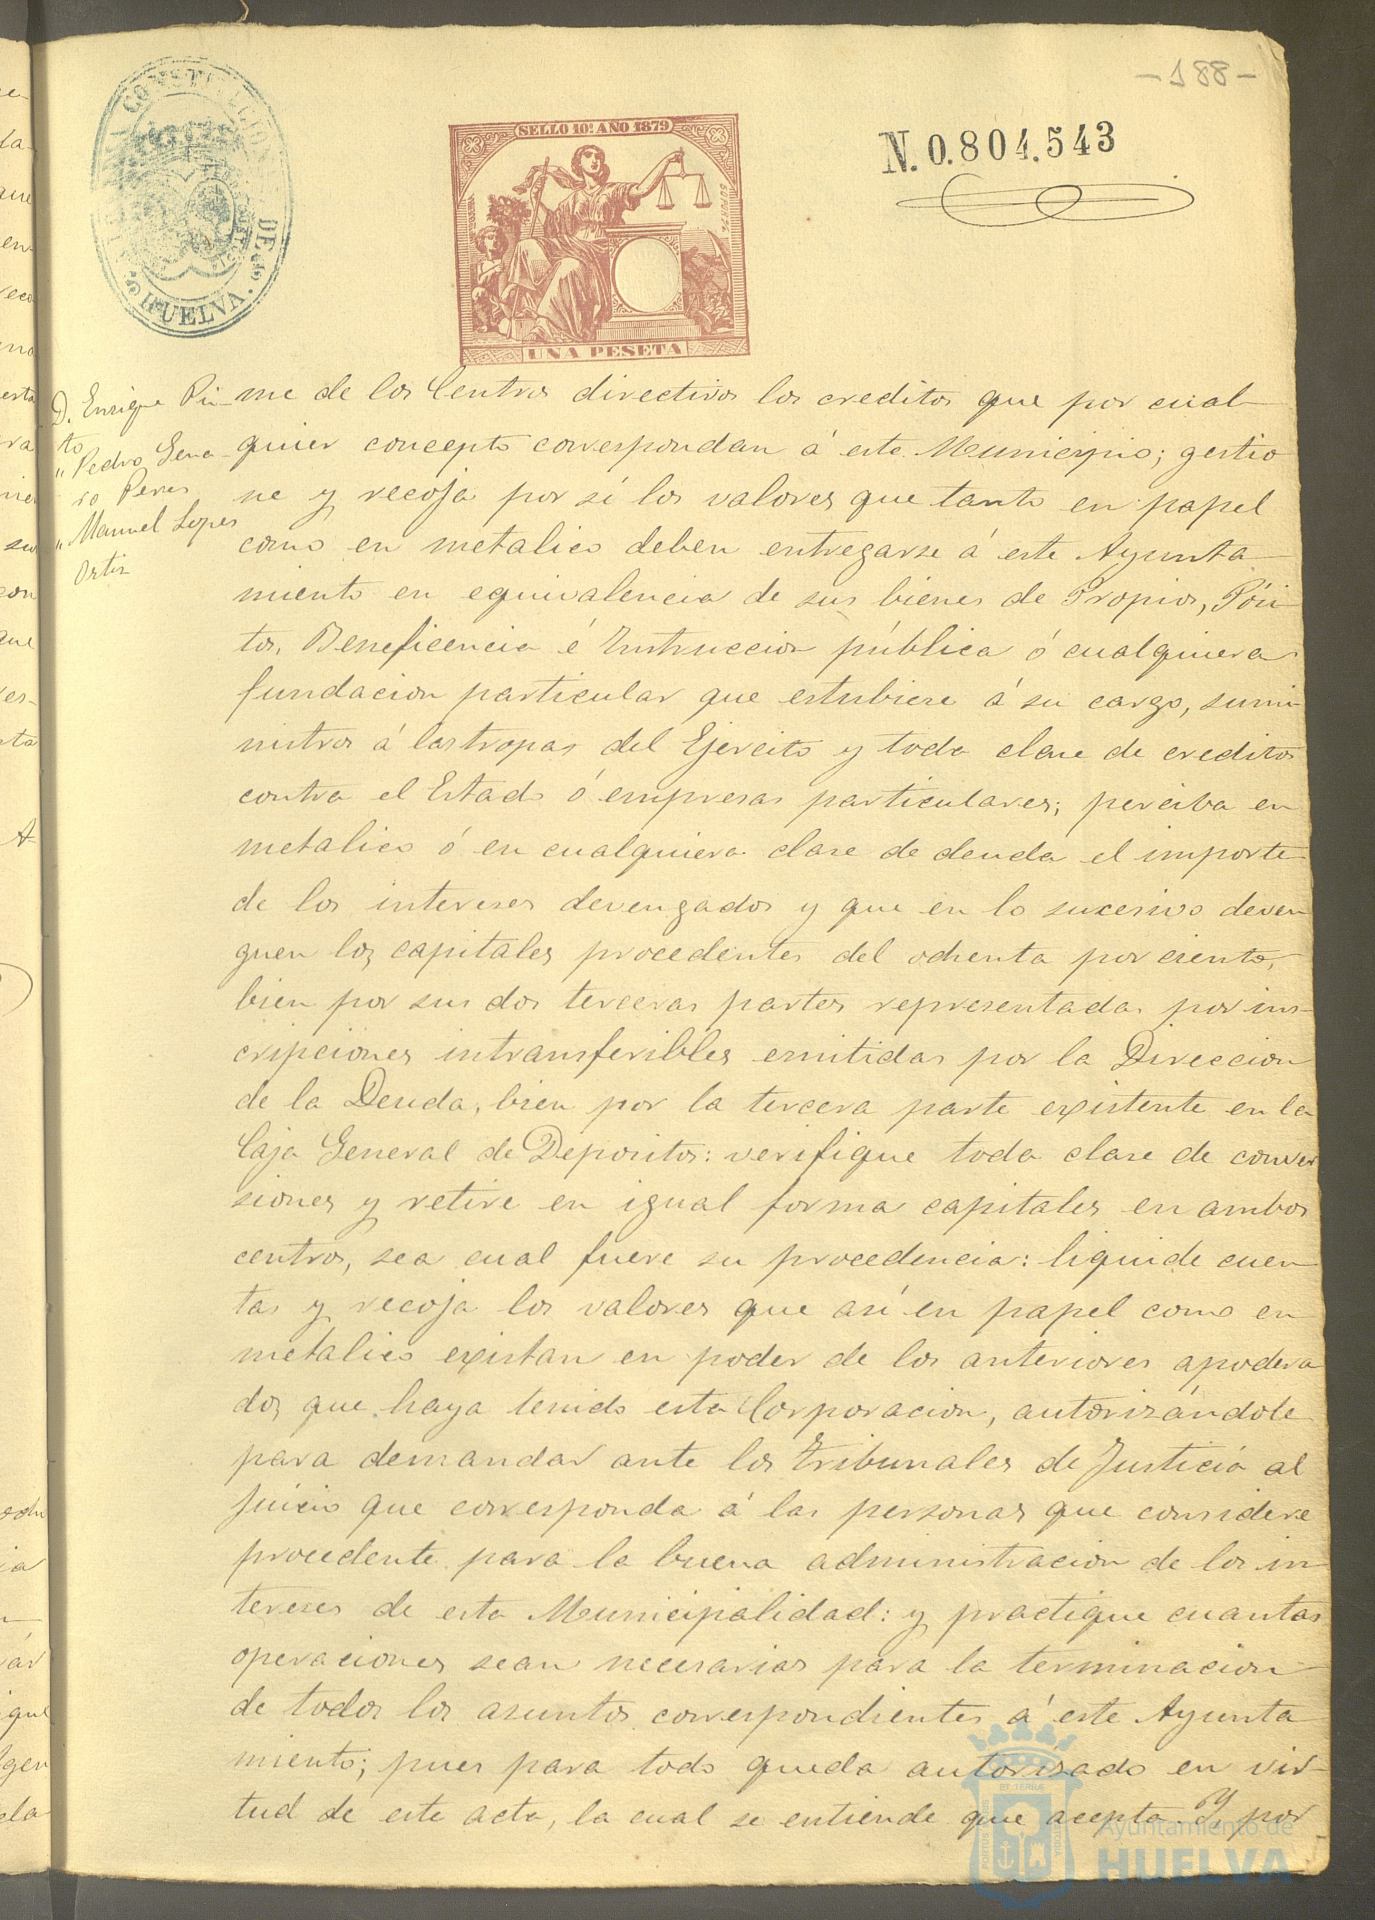 -188-
ALCALDIA CONSTITUCIONAL DE HUELVA.
SELLO 10º AÑO 1879
N. 0.804.543
UNA PESETA
D. Enrique Pin-
to
" Pedro Gena-
ro Peres
" Manuel Lopes
Ortiz
me de los Centros directivos los creditos que por cual-
quier concepto correspondan á este Municipio; gestio
ne y recoja por sí los valores que tanto en papel
como en metalico deben entregarse á este Ayunta-
miento en equivalencia de sus bienes de Propios, Pósi-
tos, Beneficencia é Instruccion pública ó cualquiera
fundacion particular que estubiese á su cargo, sumi-
nistros á las tropas del Ejercito y toda clase de creditos
contra el Estado ó empresas particulares; perciba en
metalico ó en cualquiera clase de deuda el importe
de los intereses devengados y que en lo sucesivo deven
guen los capitales procedentes del ochenta por ciento,
bien por sus dos terceras partes representadas por ins-
cripciones intransferibles emitidas por la Direccion
de la Deuda, bien por la tercera parte existente en la
Caja General de Depositos: verifique toda clase de conver
siones y retire en igual forma capitales en ambos
centros, sea cual fuere su procedencia: liquide cuen
tas y recoja los valores que así en papel como en
metalico existan en poder de los anteriores apodera
dos que haya tenido esta Corporacion, autorizándole
para demandar ante los tribunales de Justicia al
juicio que corresponda á las personas que considere
procedente para la buena administracion de los in-
tereses de esta Municipalidad: y practique cuantas
operaciones sean necesarias para la terminacion
de todos los asuntos correspondientes á este Ayunta
miento; pues para todo queda autorizado en vir-
tud de este acta, la cual se entiende que acepta. Y por
Ayuntamiento de
HUELVA